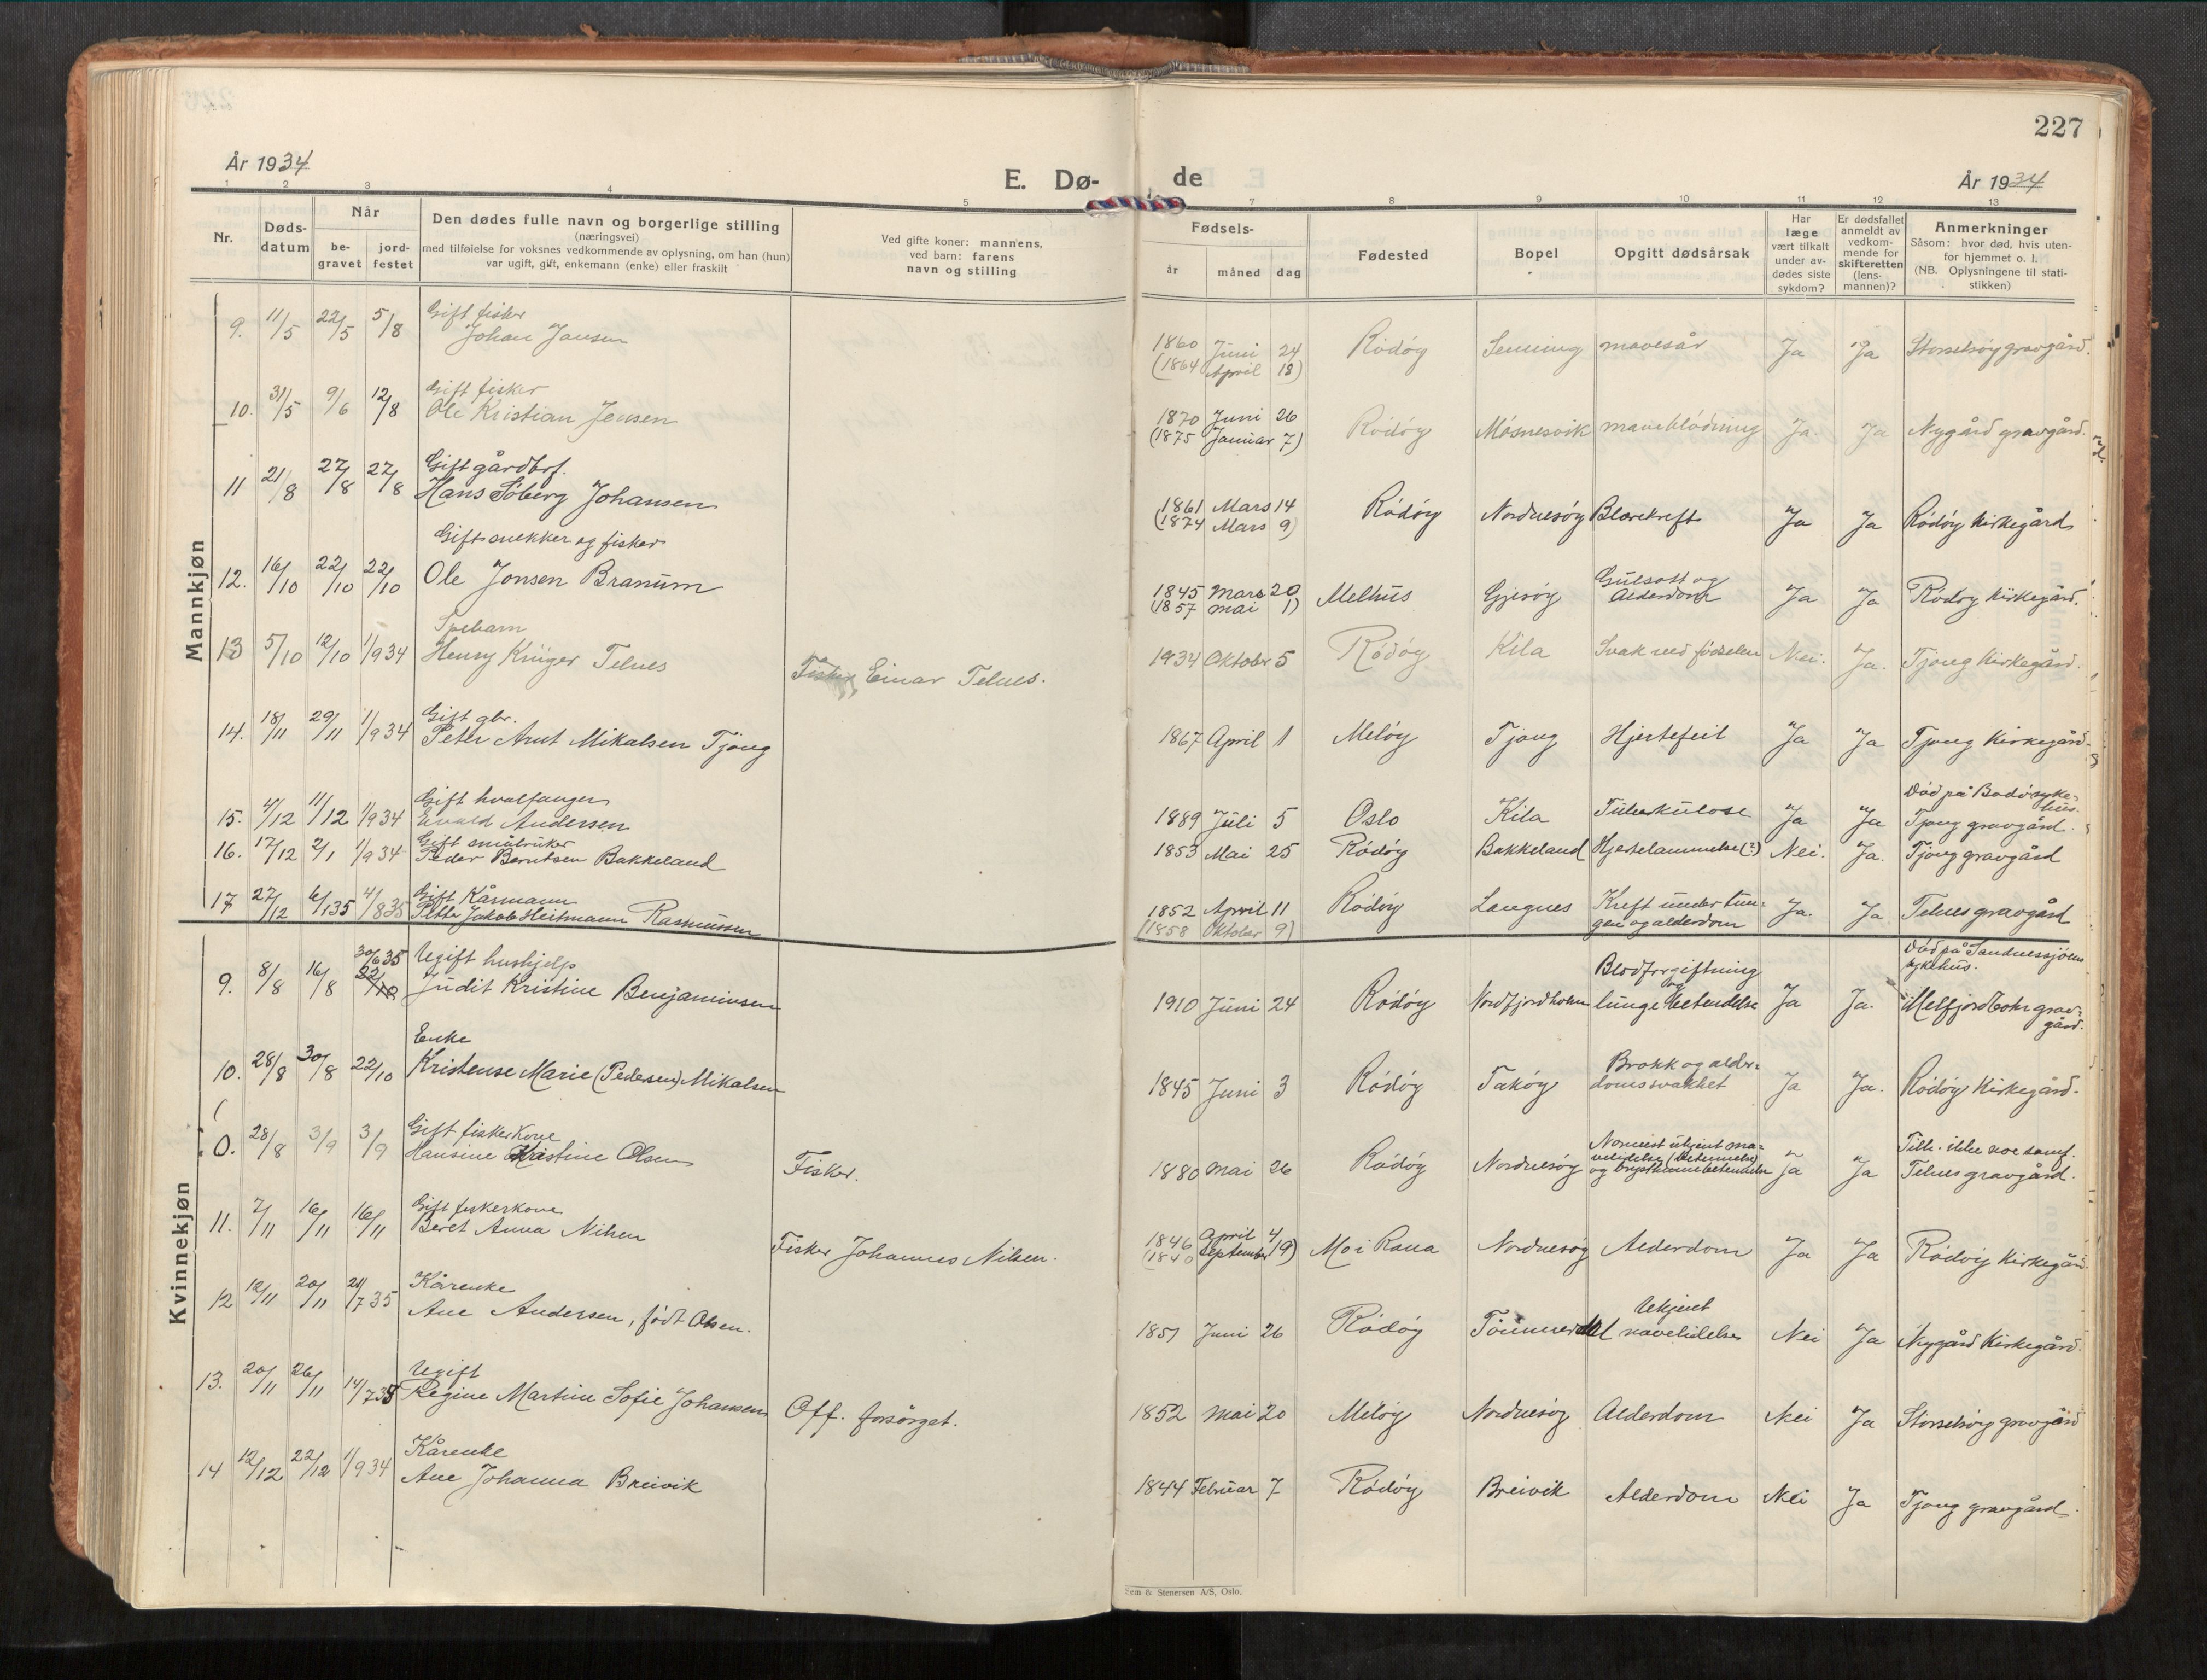 227
År 1934
E. Dø-
de
År 1934
1 2 3 4 5 7 8 9 10 11 12 13
Nr.
Døds-
datum
Når
be-
gravet
jord-
festet
Den dødes fulle navn og borgerlige stilling
(næringsvei)
med tilføielse for voksnes vedkommende av oplysning, om han (hun)
var ugift, gift, enkemann (enke) eller fraskilt
Ved gifte koner: mannens,
ved barn: farens
navn og stilling
Fødsels-
år
måned
dag
Fødested
Bopel
Opgitt dødsårsak
Har
læge
vært tilkalt
under av-
dødes siste
sykdom?
Er dødsfallet
anmeldt av
vedkom-
mende for
skifteretten
(lens-
mannen)?
Anmerkninger
Såsom: hvor død, hvis uten-
for hjemmet o. l.
(NB. Oplysningene til stati-
stikken)
Mannkjøn
Gift fisker
9. 11/5 22/5 5/8 Johan Jansen 1860 Juni 24 Rödöy mavesår Ja Ja Storselsöy gravgård.
(1864 April 18)
Gift fisker
10. 31/5 9/6 12/8 Ole Kristian Jensen 1870 Juni 26 Rödöy Mösnesvik maveblödning Ja. Ja Nygård gravgård.
(1875 Januar 7)
Gift gårdbr.
11 21/8 27/8 27/8 Hans Söberg Johansen 1861 Mars 14 Rödöy Nordnesöy Blærekreft Ja Ja Rödöy kirkegård
(1874 Mars 9)
Gift snekker og fisker
12. 16/10 22/10 22/10 Ole Jonsen Branum 1845 Mars 20 Melhus Gjesöy Gulsott og Ja Ja Rödöy kirkegård.
(1857 Mai 1) Alderdom
Spebarn
13 5/10 12/10 1/9 34 Henry Krüger Telnes Fisker Einar Telnes. 1934 Oktober 5 Rödöy Kila Svak ved födselen Nei. Ja. Tjong Kirkegård.
Gift gbr.
14. 18/11 29/11 1/9 34 Peter Arnt Mikalsen Tjong 1867 April 1 Melöy Tjong Hjertefeil Ja Ja Tjong Kirkegård.
Gift hvalfanger Död på Bodö syke-
hus.
15. 4/12 11/12 1/9 34 Evald Andersen 1889 Juli 5 Oslo Kila Tuberkulose Ja Ja Tjong gravgård.
Gift småbruker
16. 17/12 2/1 1/9 34 Peder Berntsen Bakkeland 1853 Mai 25 Rödöy Bakkeland Hjertelammelse (?) Nei. Ja. Tjong gravgård
Gift Kårmann
17 27/12 6/1 35 4/8 35 Petter Jakob Heitmann Rasmussen 1852 April 11 Rödöy Langnes Kreft under tun- Ja. Ja Telnes gravgård
(1858 Oktober 9) gen og alderdom
Kvinnekjøn
30/6 35 Ugift hushjelp Blodforgiftning Död på Sandnessjöen
sykehus.
9. 8/8 16/8 22/10 Judit Kristine Benjaminsen 1910 Juni 24 Rödöy Nordfjordholm og lungebetendelse Ja Ja. Melfjordbotn grav-
gård.
Enke Brokk og alder-
10. 28/8 30/8 22/10 Kristense Marie (Pedersen) Mikalsen 1845 Juni 3 Rödöy Taköy domssvakhet Ja Ja. Rödöy Kirkegård.
Gift fiskerkone ukjent ma-
0. 28/8 3/9 3/9 Hansine Kristine Olsen Fisker. 1880 Mai 26 Rödöy Nordnesöy velidelse (betennelse) Ja Ja Tilh. ikke noe samf.
og brysthinnebetennelse Telnes gravgård.
Gift fiskerkone
11. 7/11 16/11 16/11 Beret Anna Nilsen Fisker Johannes Nilsen. 1846 April 4 Mo i Rana Nordnesöy Alderdom Ja Ja Rödöy Kirkegård.
(1840 September 19)
Kårenke Ukjent
12 12/11 20/11 21/7 35 Ane Andersen, födt Olsen. 1851 Juni 26 Rödöy Tömmerdal mavelidelse Nei Ja Nygård Kirkegård.
Ugift
13. 20/11 26/11 14/7 35 Regine Martine Sofie Johansen Off. forsörget. 1852 Mai 20 Melöy Nordnesöy Alderdom Nei Ja Storselsöy gravgård
Kårenke
14 12/12 22/12 1/9 34 Ane Johanna Breivik 1844 Februar 7 Rödöy Breivik Alderdom Nei Ja Tjong gravgård.
Sem & Stenersen A/S, Oslo.